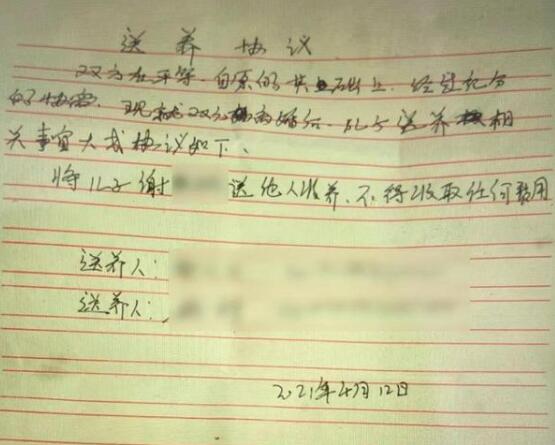 送养协议
双方在平等、自愿的基础上，经过充分
的协商，现就双方婚后，儿子送养相
关事宜大成协议如下、
将儿子谢 送他人收养、不得收取任何费用
送养人：
送养人：
2021年4月12日